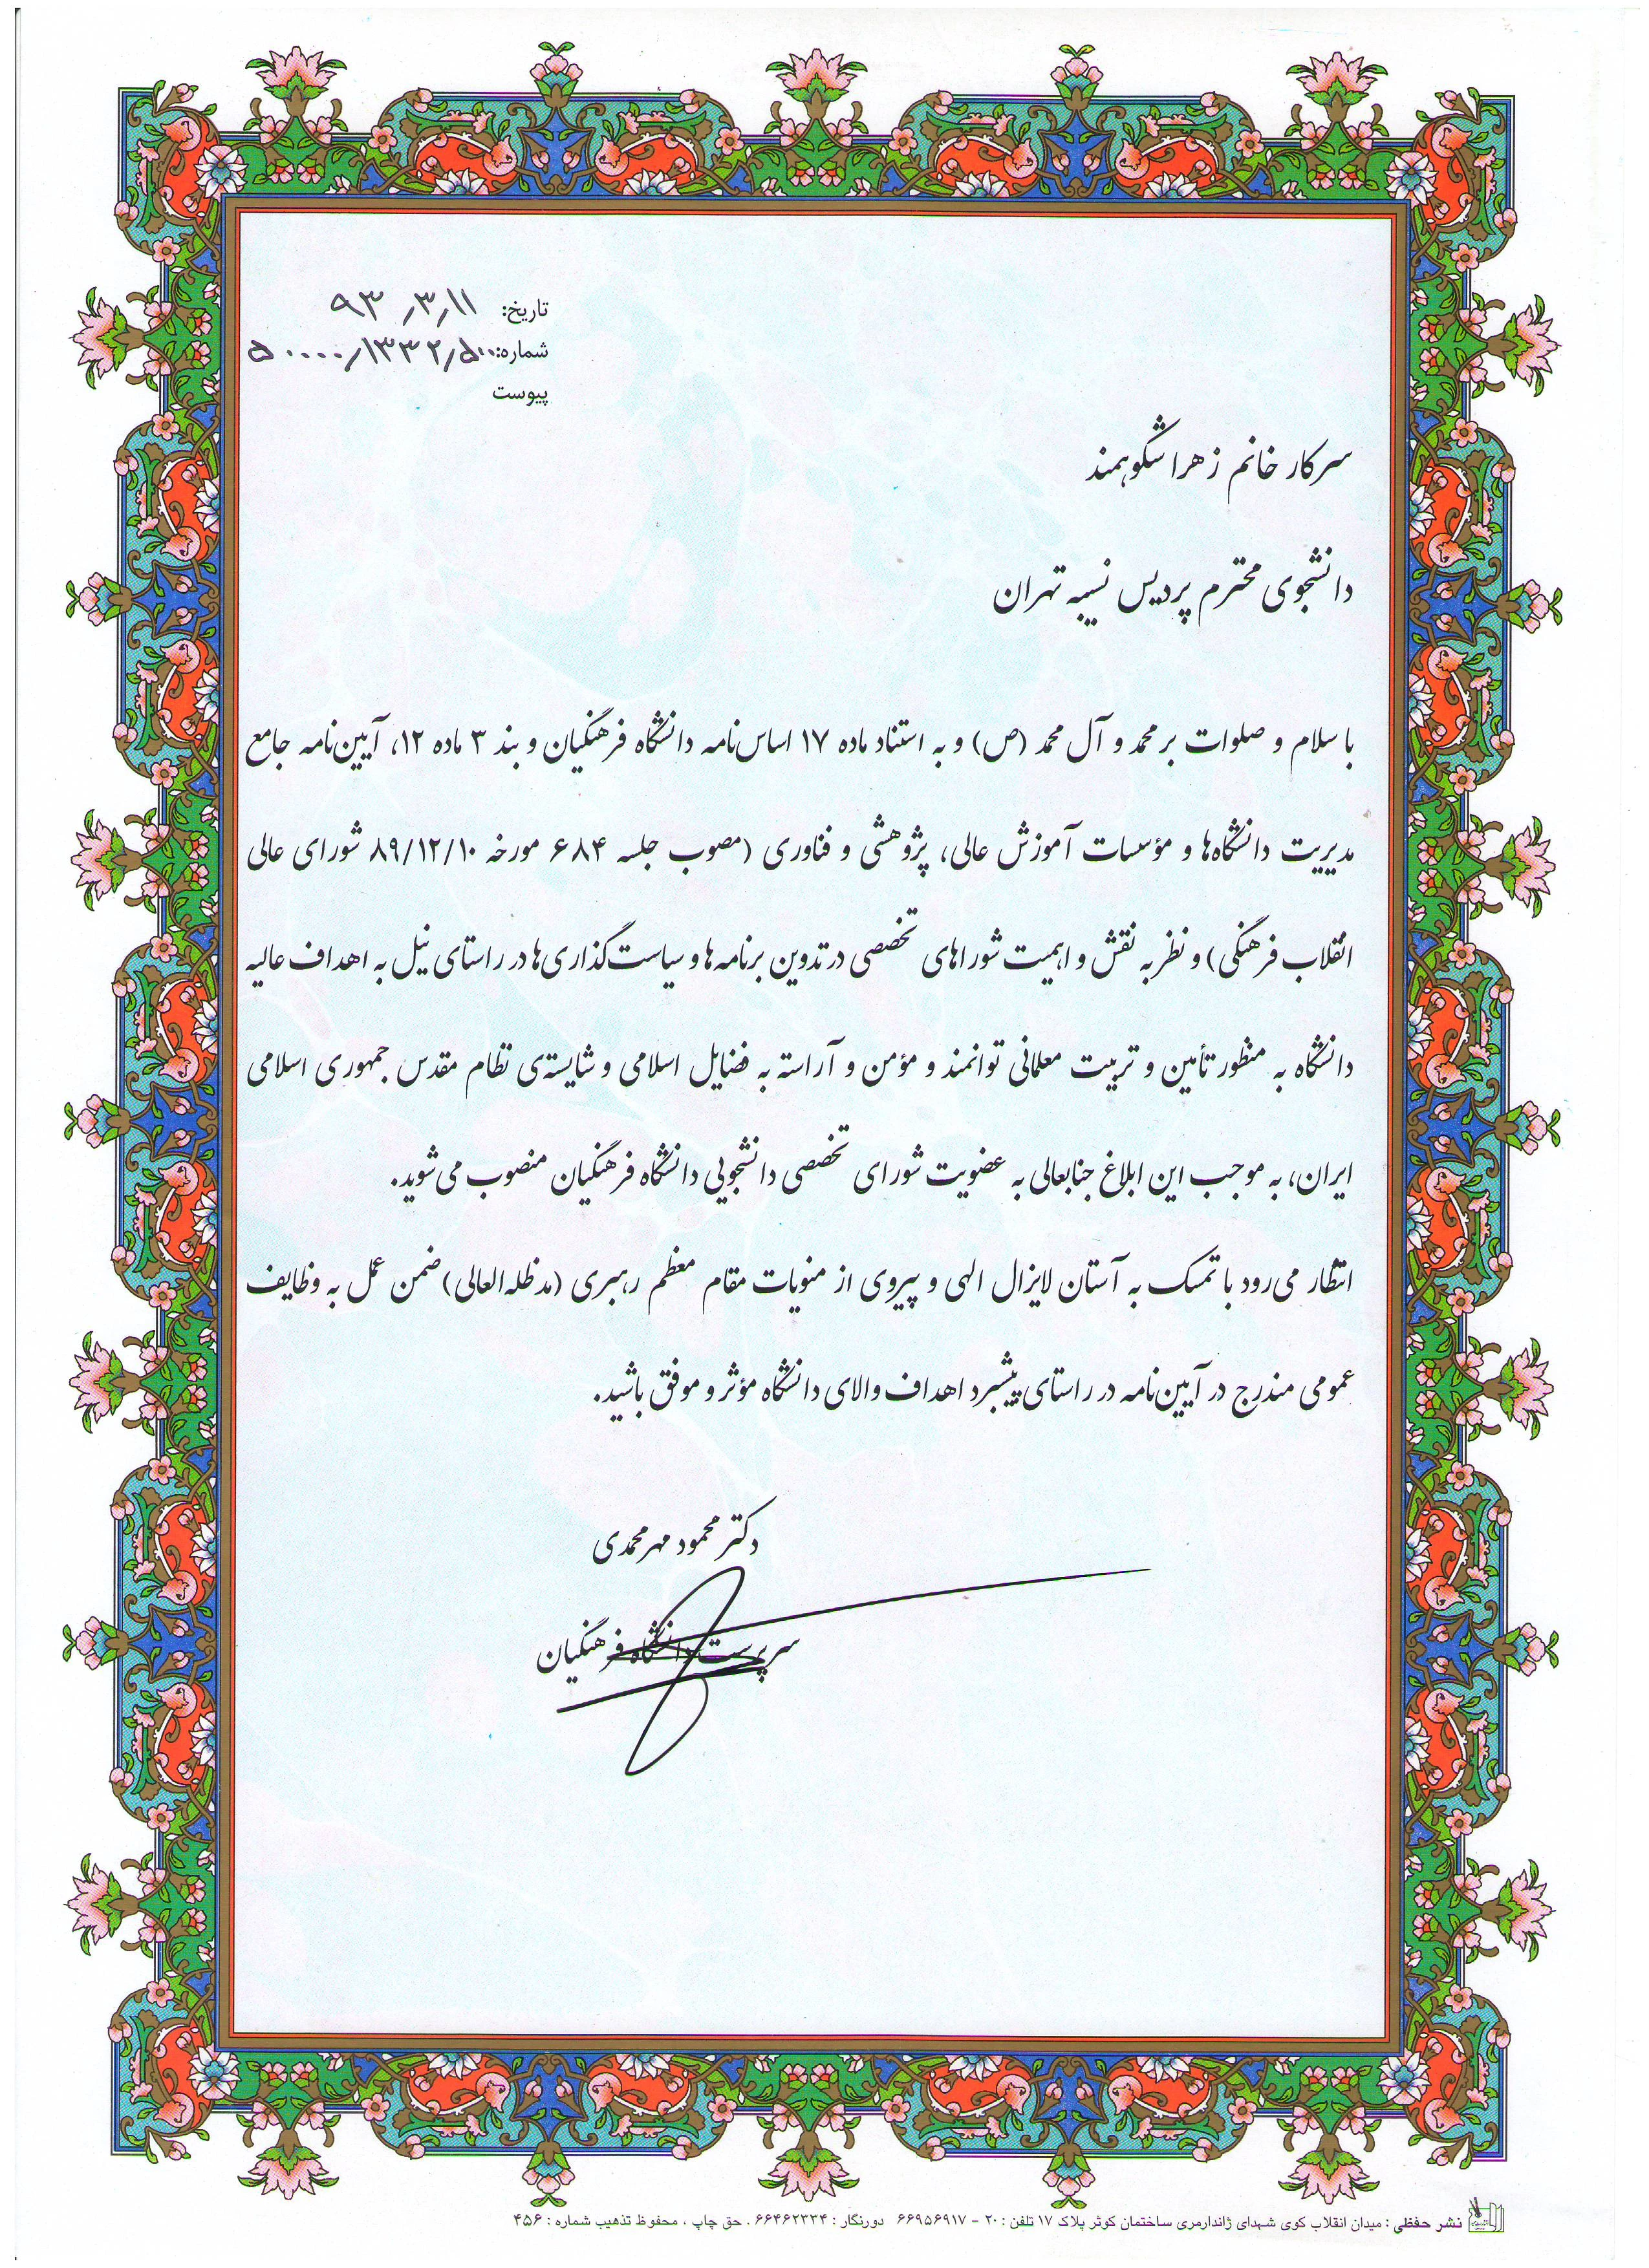 تاریخ: ۹۳/۳/۱۱
شماره: ۵۰۰۰۰/۱۳۳۲/۵۰۰
پیوست
سرکار خانم زهرا شکوهمند
دانشجوی محترم پردیس نسیبه تهران
با سلام و صلوات بر محمد و آل محمد (ص) و به استناد ماده ۱۷ اساس‌نامه دانشگاه فرهنگیان و بند ۳ ماده ۱۲، آیین‌نامه جامع
مدیریت دانشگاه‌ها و مؤسسات آموزش عالی، پژوهشی و فناوری (مصوب جلسه ۶۸۴ مورخه ۸۹/۱۲/۱۰ شورای عالی
انقلاب فرهنگی) و نظر به نقش و اهمیت شوراهای تخصصی در تدوین برنامه‌ها و سیاست‌گذاری‌ها در راستای نیل به اهداف عالیه
دانشگاه به منظور تأمین و تربیت معلمانی توانمند و مؤمن و آراسته به فضایل اسلامی و شایسته‌ی نظام مقدس جمهوری اسلامی
ایران، به موجب این ابلاغ جنابعالی به عضویت شورای تخصصی دانشجویی دانشگاه فرهنگیان منصوب می‌شوید.
انتظار می‌رود با تمسک به آستان لایزال الهی و پیروی از منویات مقام معظم رهبری (مدظله‌العالی) ضمن عمل به وظایف
عمومی مندرج در آیین‌نامه در راستای پیشبرد اهداف والای دانشگاه مؤثر و موفق باشید.
دکتر محمود مهرمحمدی
سرپرست دانشگاه فرهنگیان
نشر حفظی : میدان انقلاب کوی شهدای ژاندارمری ساختمان کوثر پلاک ۱۷ تلفن : ۲۰ - ۶۶۹۵۶۹۱۷ دورنگار : ۶۶۴۶۲۳۳۴ . حق چاپ ، محفوظ تذهیب شماره : ۴۵۶